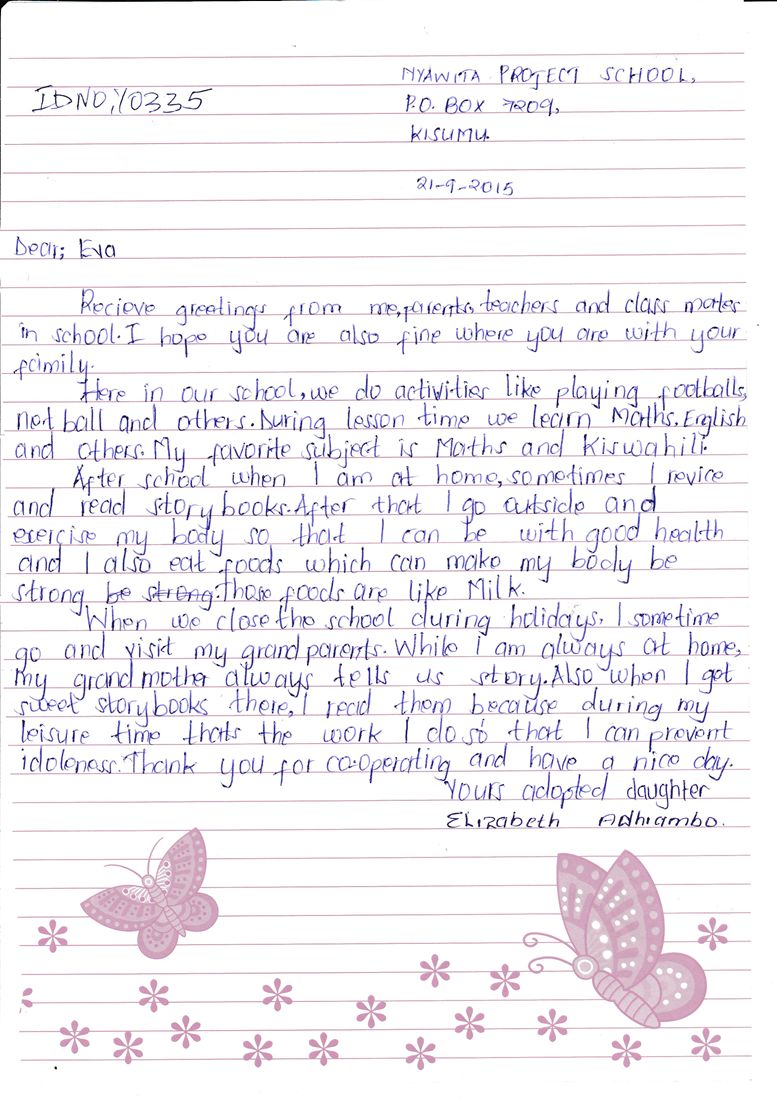 NYAWITA PROJECT SCHOOL,
IDNO,Y0335
P.O. BOX 7209,
KISUMU.
21-9-2015
Dear; Eva
Recieve greetings from me, parents, teachers and class mates
in school. I hope you are also fine where you are with your
family.
Here in our school, we do activities like playing footballs,
net ball and others. During lesson time we learn Maths. English
and others. My favorite subject is Maths and Kiswahili.
After school when I am at home, sometimes I revice
and read story books. After that I go outside and
exercise my body so that I can be with good health
and I also eat foods which can make my body be
strong be strong. Those foods are like Milk.
When we close the school during holidays, I sometime
go and visit my grand parents. While I am always at home,
my grand mother always tells us story. Also when I get
sweet storybooks there, I read them because during my
leisure time thats the work I do so that I can prevent
idoleness. Thank you for co-operating and have a nice day.
Yours adopted daughter
Elizabeth Adhiambo.